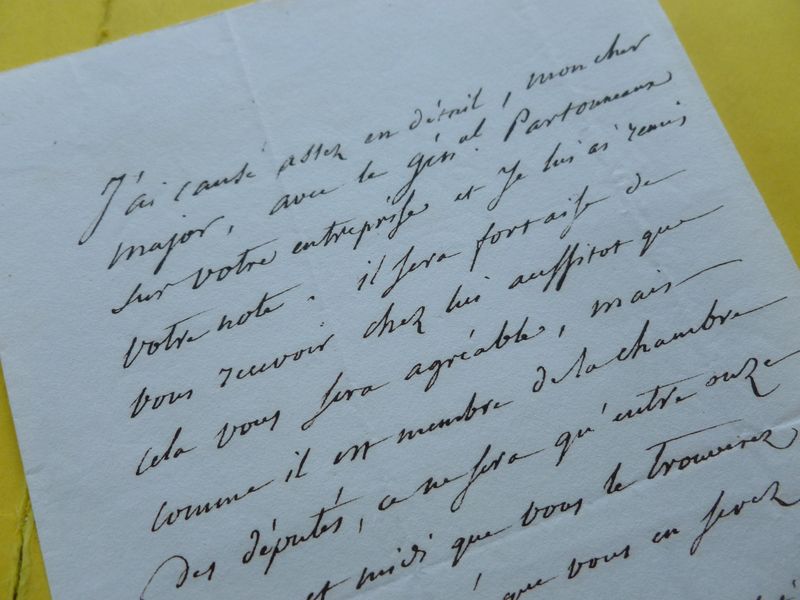 J'ai causé assez en détail, mon cher
major, avec le génal Partouneaux
sur votre entreprise et je lui ai remis
votre note. il sera fort aise de
vous recevoir chez lui aussitot que
cela vous sera agréable, mais
comme il est membre de la chambre
des députés, ce ne sera qu'entre onze
et midi que vous le trouverez
que vous en serez